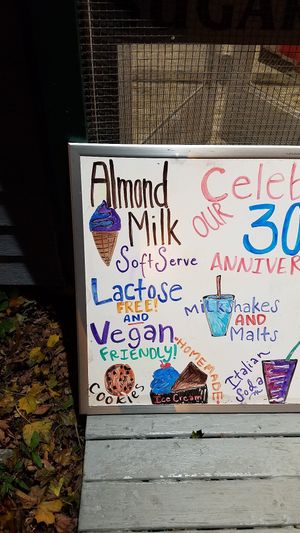 Almond
Milk
Soft Serve
Lactose
FREE!
AND
Vegan
FRIENDLY!
Cookies
HOMEMADE!
Ice Cream
Celeb
OUR
30
ANNIVER
Milkshakes
AND
Malts
Italian
Soda